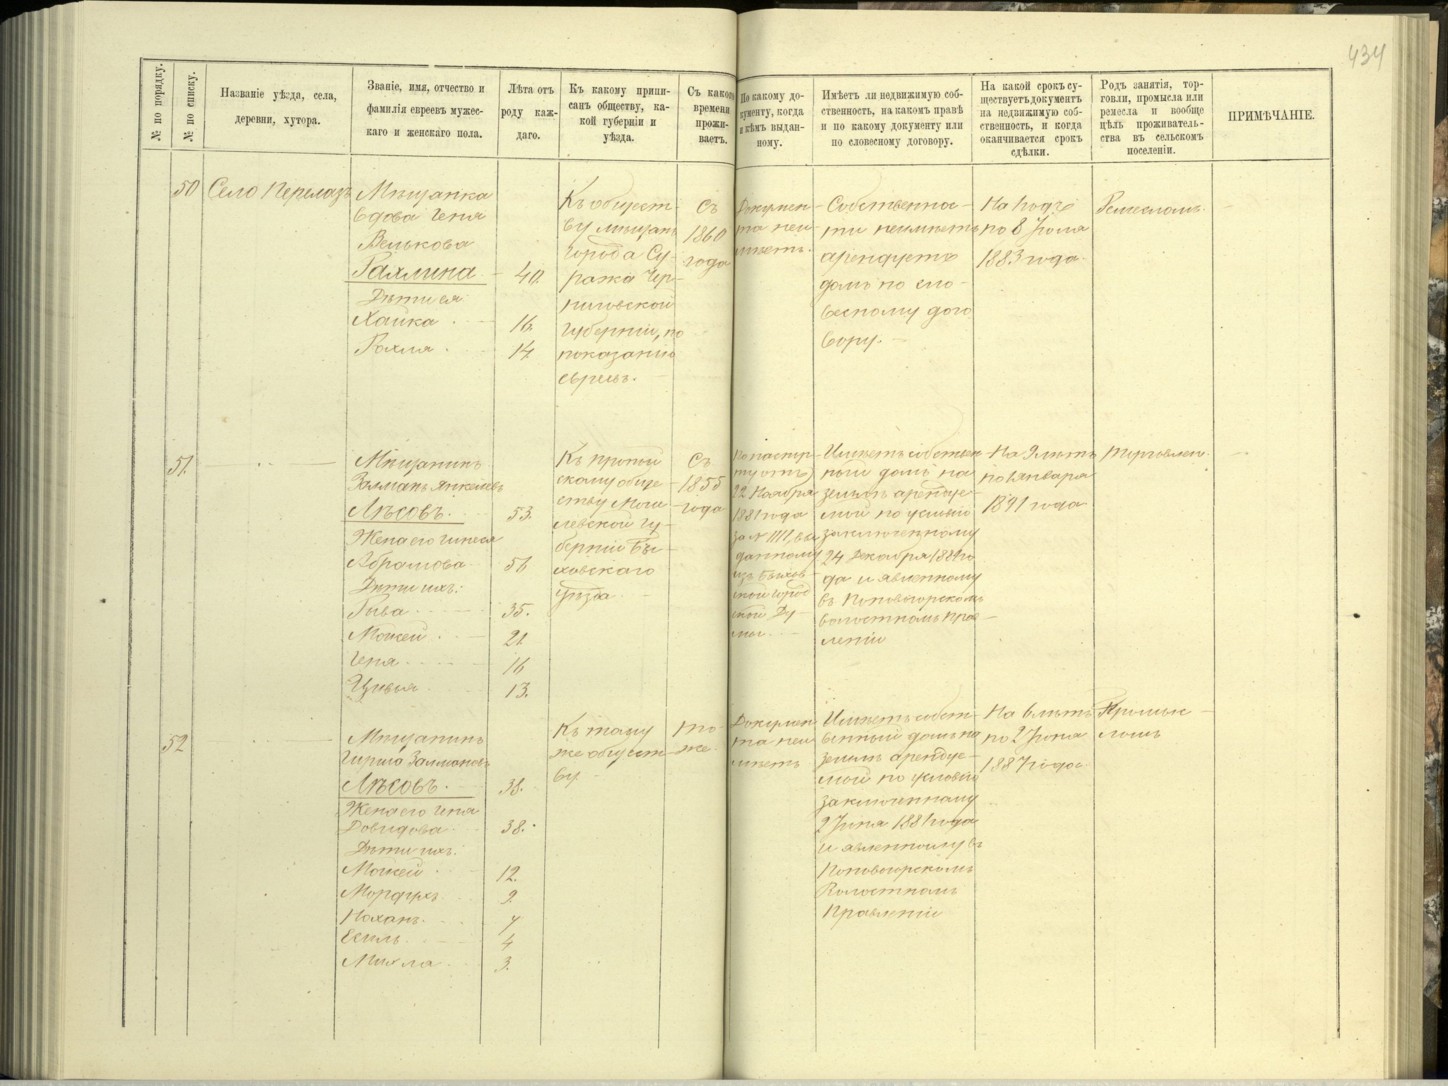 434
№ по порядку.
№ по списку.
Названіе уѣзда, села,
деревни, хутора.
Званіе, имя, отчество и
фамилія евреевъ мужес-
каго и женскаго пола.
Лѣта отъ
роду каж-
даго.
Къ какому припи-
санъ обществу, ка-
кой губерніи и
уѣзда.
Съ какого
времени
прожи-
ваетъ.
По какому до-
кументу, когда
и кѣмъ выдан-
ному.
Имѣетъ ли недвижимую соб-
ственность, на какомъ правѣ
и по какому документу или
по словесному договору.
На какой срокъ су-
ществуетъ документъ
на недвижимую соб-
ственность, и когда
оканчивается срокъ
сдѣлки.
Родъ занятія, тор-
говли, промысла или
ремесла и вообще
цѣль проживатель-
ства въ сельском
поселеніи.
ПРИМѢЧАНІЕ.
50
Село Перелазъ
Мѣщанка
Вдова Геня
Велькова
Рахлина - 40.
Дѣти ея
Хайка - 16.
Рохля - 14.
Къ общест-
ву мѣщанъ
города Су-
ража Чер-
ниговской
губерніи, по
показанію
евреевъ.
Съ
1860
года
Докумен-
та неи-
мѣетъ.
Собственнос-
ти неимѣетъ
арендуетъ
домъ по сло-
весному дого
вору.
На годъ
по 8 Іюля
1883 года
Ремесломъ.
51.
Мѣщанинъ
Залманъ Янкелевъ
Лѣсовъ. 53.
Жена его
Абрамова 56
Дѣти ихъ:
35.
Мовшей - 21.
Геня - 16
Цивья 13.
Къ Пропой
скому обще-
ству Моги-
левской гу-
берніи Бы-
ховскаго
уѣзда
Съ
1855
года
22 Ноября
1881 года
данному
изъ Быхов
ской город
ской Ду-
мы.
Имѣетъ собствен
ный домъ на
землѣ арендуе-
мой по условію
заключенному
24 Декабря 1881 го
да и явленному
въ Поповогорскомъ
волостномъ прав-
леніи
На 9 лѣтъ
по 1 января
1891 года
Торговлей.
52
Мѣщанинъ
Гирша Залмановъ
Лѣсовъ. 38.
Жена его Геня
Довидова 38.
Дѣти ихъ:
Мовшей 12.
Мордухъ 9
Ноханъ. 7
4
3.
Къ тому
же общест-
ву
То-
же.
Докумен-
та неи
мѣетъ
Имѣетъ собст-
венный домъ на
землѣ арендуе-
мой по условію
заключенному
2 Іюня 1881 года
и явленному въ
Поповогорскомъ
Волостномъ
Правленіи
На 6 лѣтъ
по 2 Іюня
1887 года
Промыс-
ломъ